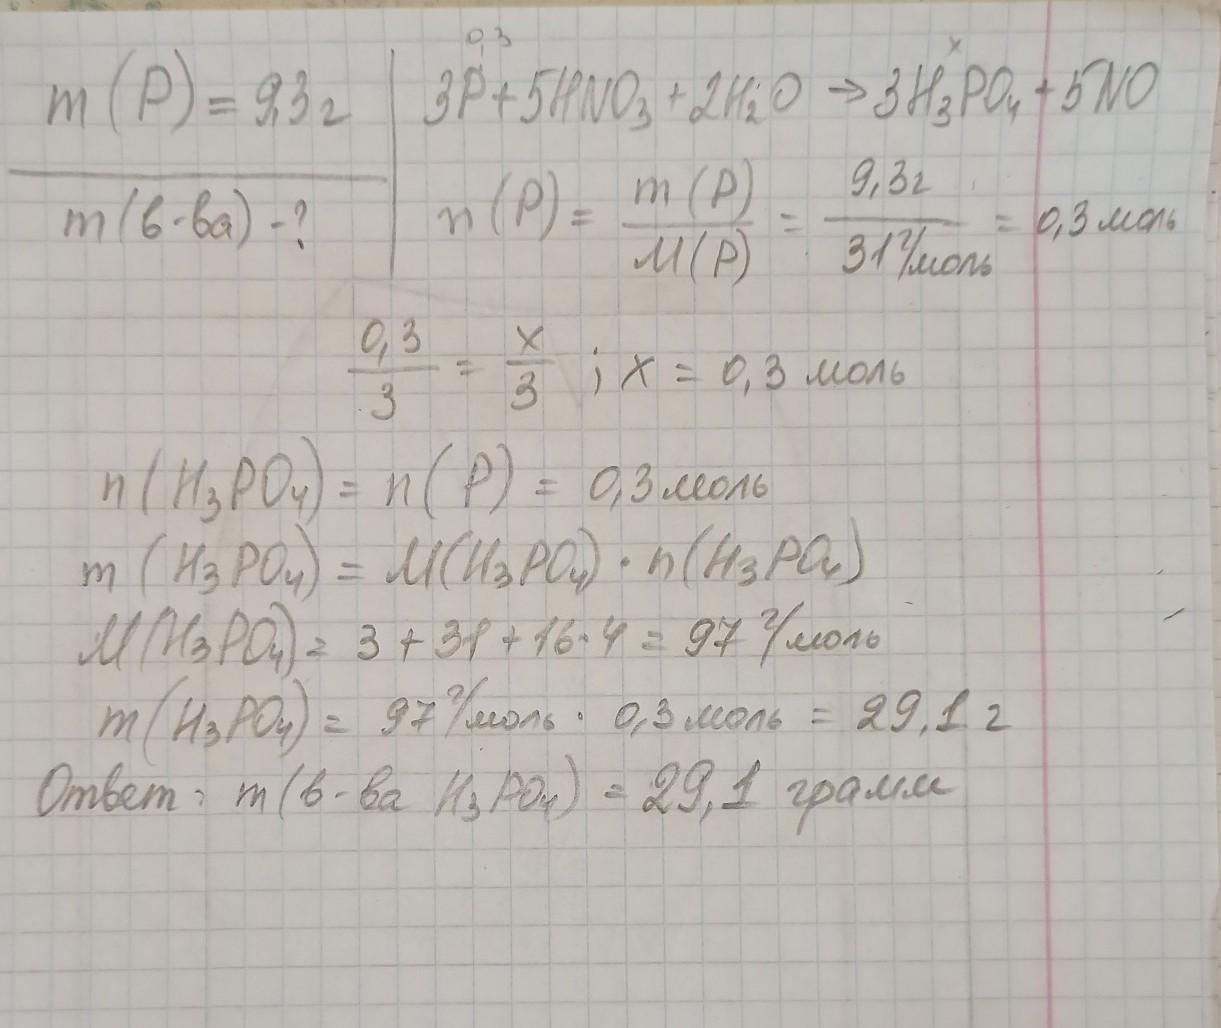 0,3 x
m(P) = 9,3г | 3P + 5HNO₃ + 2H₂O → 3H₃PO₄ + 5NO
m(в-ва) - ? n(P) = m(P)/M(P) = 9,3г/31г/моль = 0,3 моль
0,3/3 = x/3 ; x = 0,3 моль
n(H₃PO₄) = n(P) = 0,3 моль
m(H₃PO₄) = M(H₃PO₄) · n(H₃PO₄)
M(H₃PO₄) = 3 + 31 + 16·4 = 97 г/моль
m(H₃PO₄) = 97 г/моль · 0,3 моль = 29,1 г
Ответ: m(в-ва H₃PO₄) = 29,1 грамм